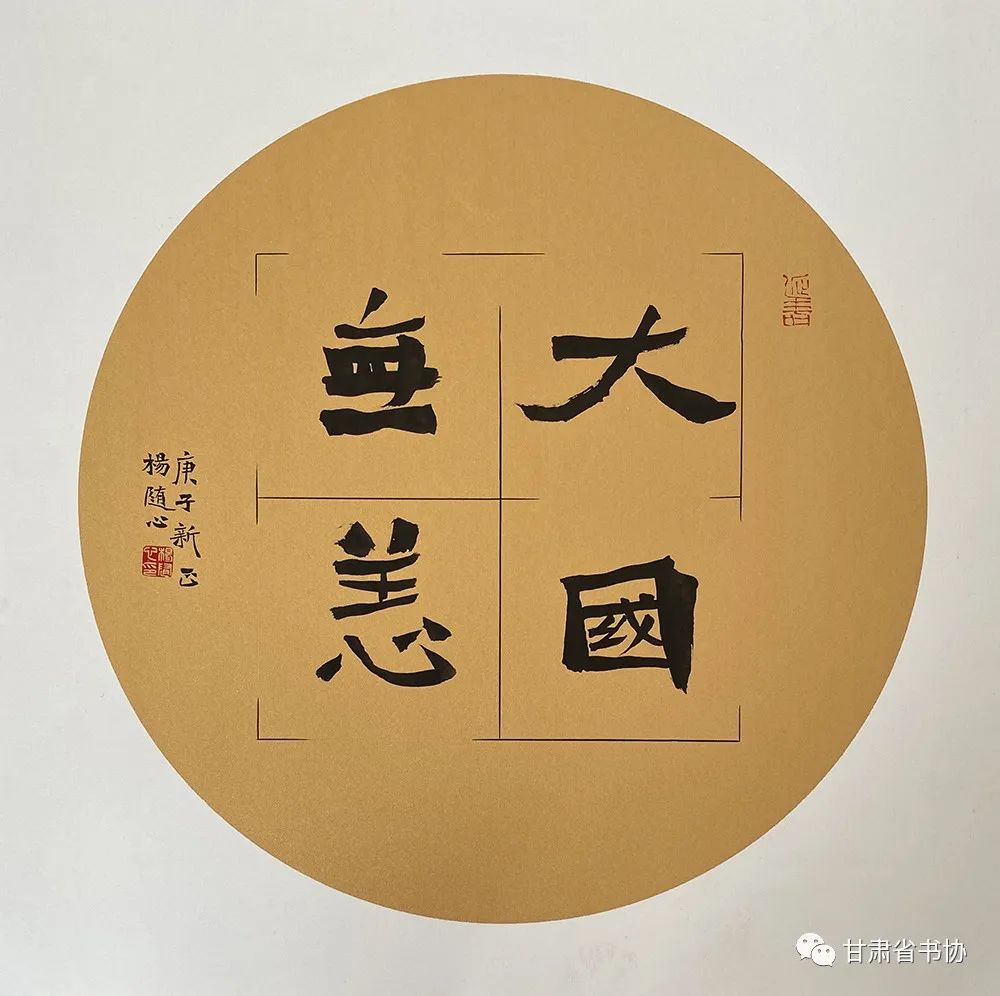 大國
無恙
庚子新正
楊随心
甘肃省书协